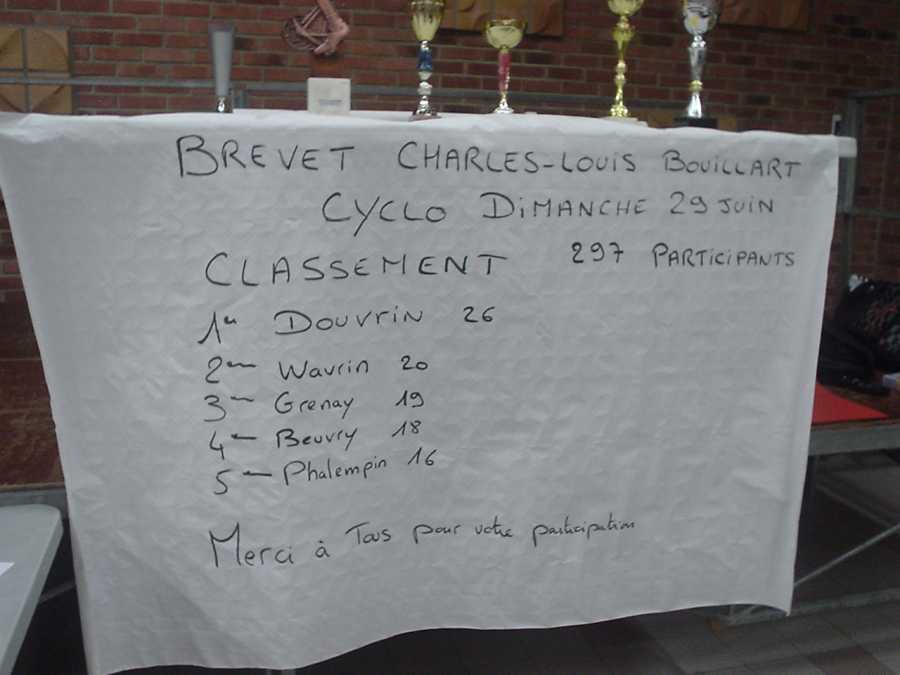 BREVET CHARLES-LOUIS BOUILLART
CYCLO DIMANCHE 29 JUIN
CLASSEMENT 297 PARTICIPANTS
1er Douvrin 26
2eme Wavrin 20
3eme Grenay 19
4eme Beuvry 18
5eme Phalempin 16
Merci à Tous pour votre participation